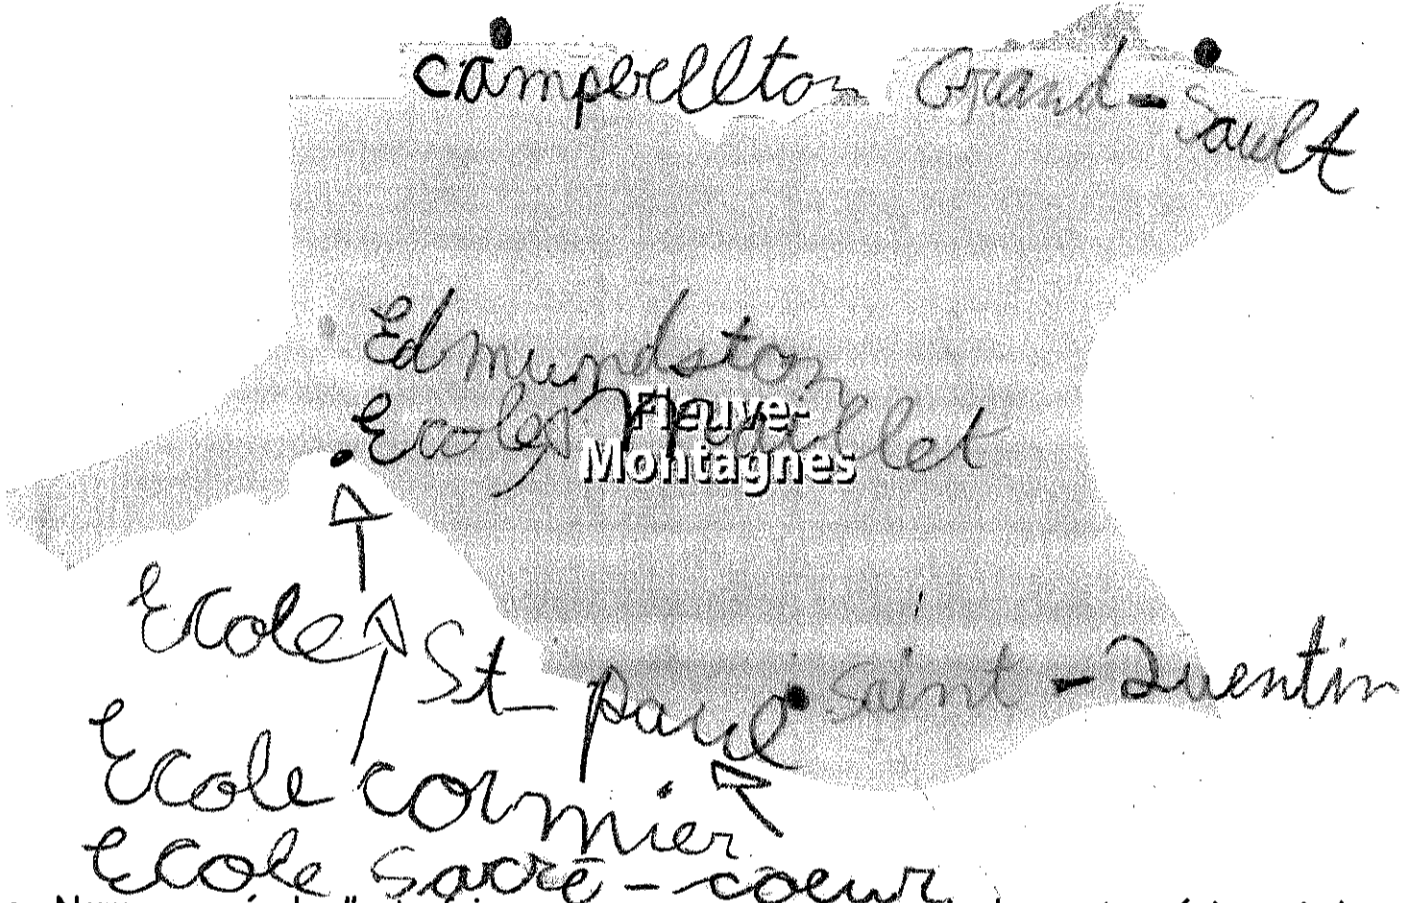 campbellton Grand-Sault
Edmundston
Ecoles Maillet
Fleuve-
Montagnes
Ecole St-paul
Saint-Quentin
Ecole cormier
Ecole Sacré-coeur